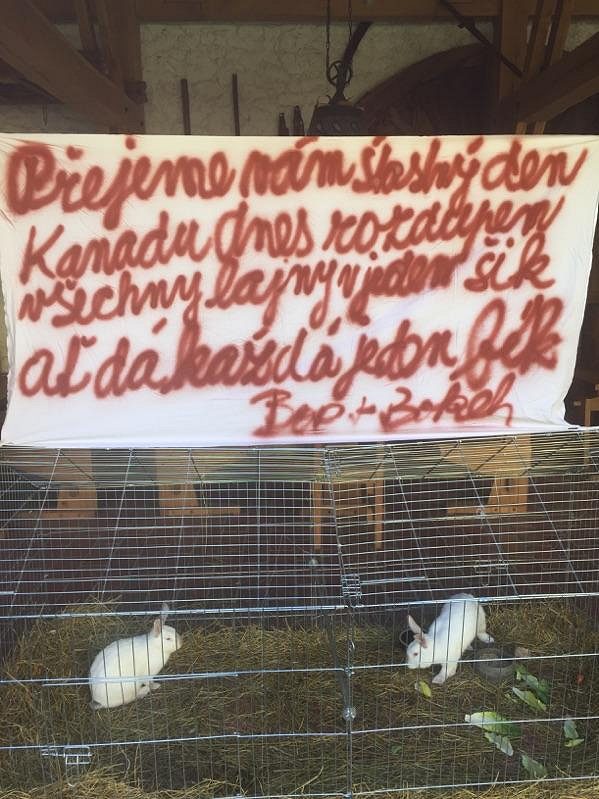 Přejeme vám šťastný den
Kanadu dnes rozdupem
všechny lajny v jeden šik
ať dá každá jeden fík
Bop + Bobeh